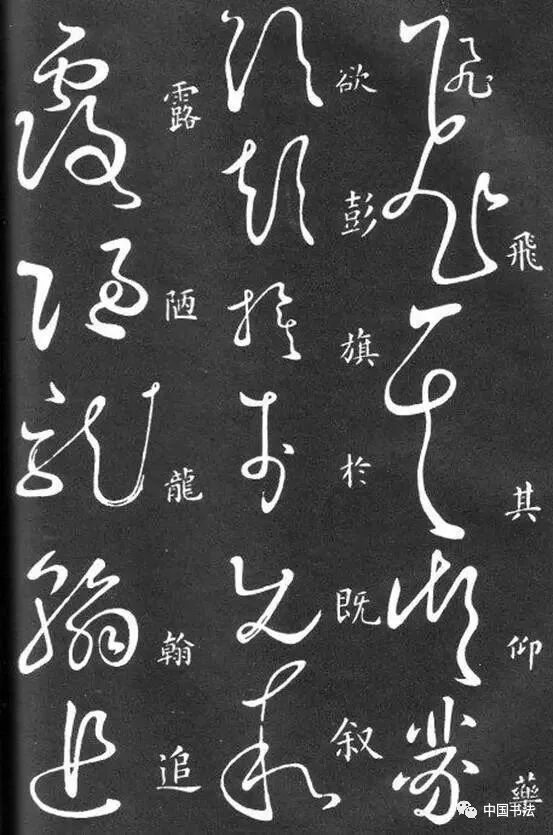 飛其仰藥
欲彭旗於既叙
露陋龍翰追
中国书法